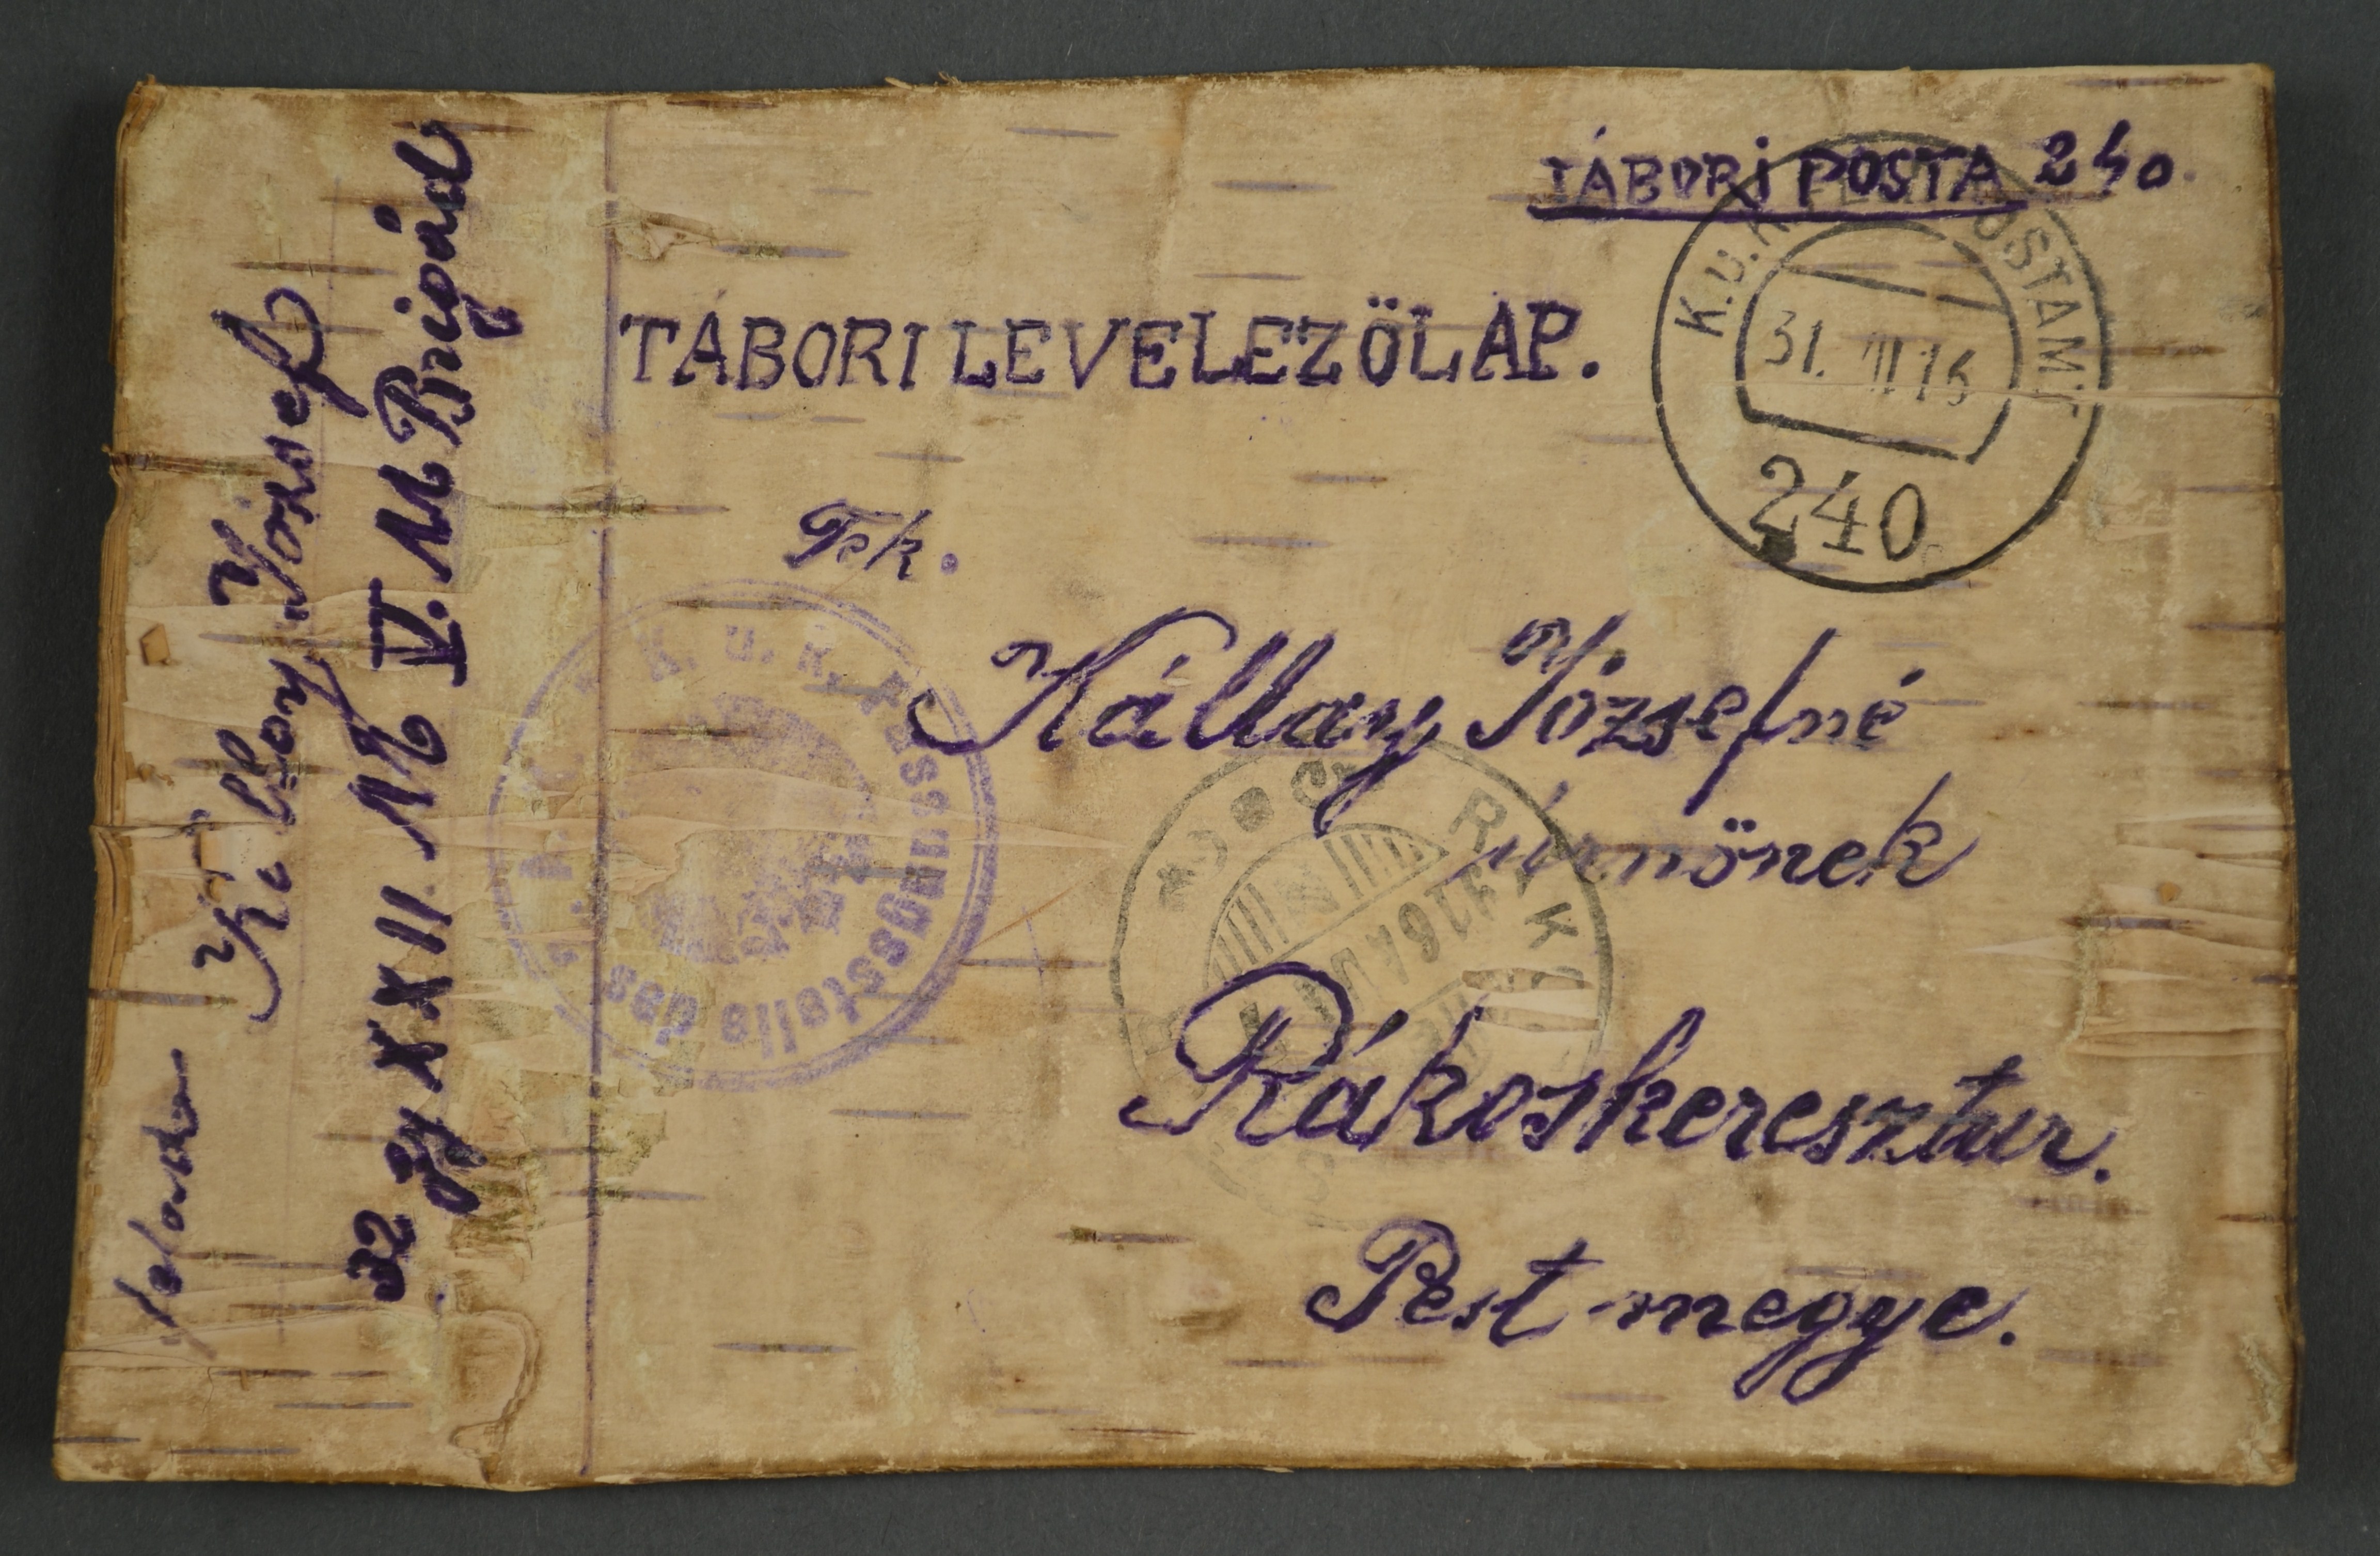 TÁBORI POSTA 240.
K.u.K. POSTAMT
31. VII 16
240
TÁBORI LEVELEZÖLAP.
Tek.
Kállay Józsefné
úrnönek
Rákoskeresztur.
Pest megye.
K. u. K. Fassungsstelle des
Kállay József
32 gy XXII M V. M Brigád